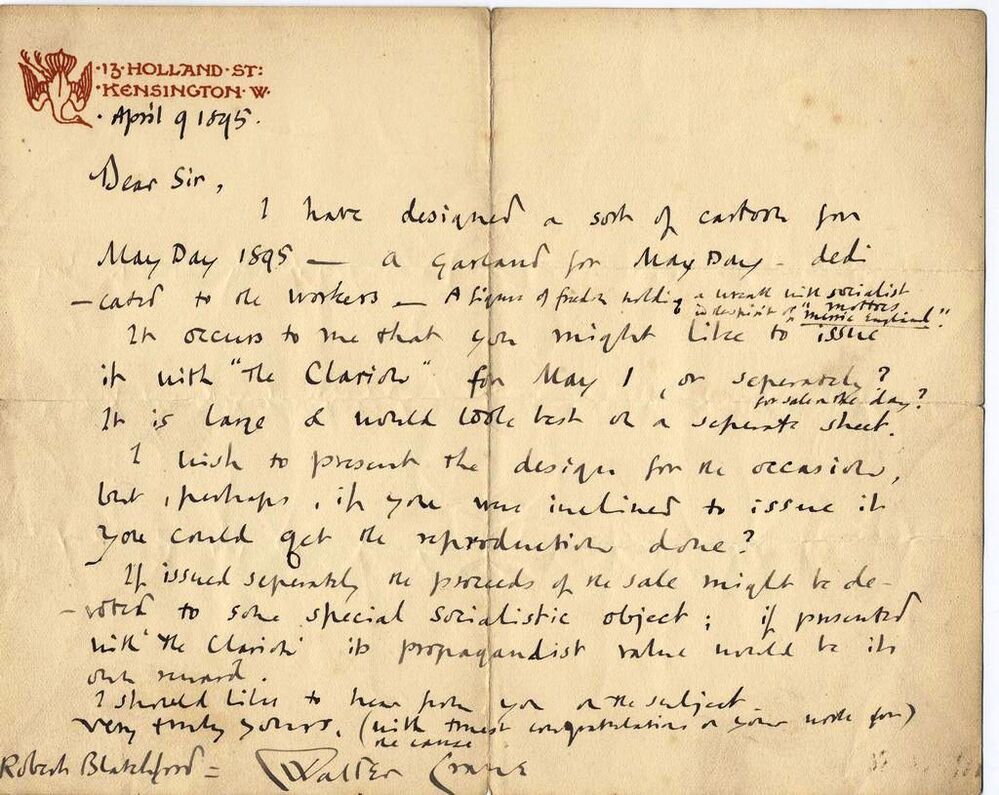 ·13·HOLLAND·ST:
·KENSINGTON·W·
· April 9 1895.
Dear Sir,
I have designed a sort of cartoon for
May Day 1895 — a garland for May Day — dedi
-cated to the workers — A figure of freedom holding a wreath with socialist
mottoes
in the spirit of a "Merrie England".
It occurs to me that you might like to issue
it with "The Clarion" for May 1, or seperately?
for sale on the day?
It is large & would look best on a seperate sheet.
I wish to present the design for the occasion,
but, perhaps, if you were inclined to issue it
you could get the reproduction done?
If issued seperately the proceeds of the sale might be de-
-voted to some special socialistic object; if presented
with 'The Clarion' its propagandist value would be its
own reward.
I should like to hear from you on the subject
very truly yours, (with congratulations on your work for)
the cause
Robert Blatchford = Walter Crane